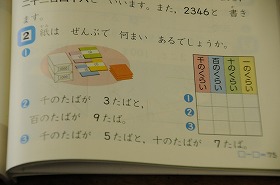 二千三百四十六と いいます。また、2346と 書き
ます。
2 紙は ぜんぶで 何まい あるでしょうか。
1
千のくらい 百のくらい 十のくらい 一のくらい
1
2
3
2 千のたばが 3たばと、
百のたばが 9たば。
3 千のたばが 5たばと、十のたばが 7たば。